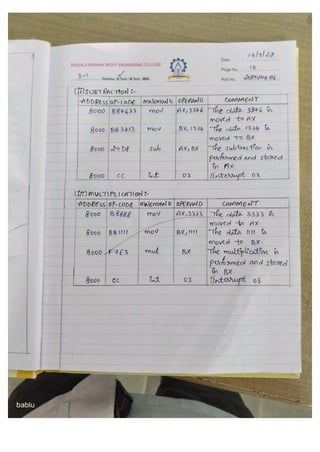 TEEGALA KRISHNA REDDY ENGINEERING COLLEGE
Diploma / B.Tech / M.Tech / MBA
3-1
Date
Page No. 18
Roll No.
(ii) SUBTRACTION:-
ADDRESS OP-CODE MNEMONIC OPERAND COMMENT
8000 B84633 mov AX,3346 The data 3346 is
moved to AX
8000 BB3412 mov BX,1234 The data 1234 is
moved to BX
8000 29D8 sub AX,BX The subtraction is
performed and stored
in AX
8000 CC int 03 interrupt 03
(iii) MULTIPLICATION:-
ADDRESS OP-CODE MNEMONIC OPERAND COMMENT
8000 mov AX,3333 The data 3333 is
moved to AX
8000 BB1111 mov BX,1111 The data 1111 is
moved to BX
8000 F7E3 mul BX The multiplication is
performed and stored
in BX.
8000 CC int 03 interrupt 03
bablu